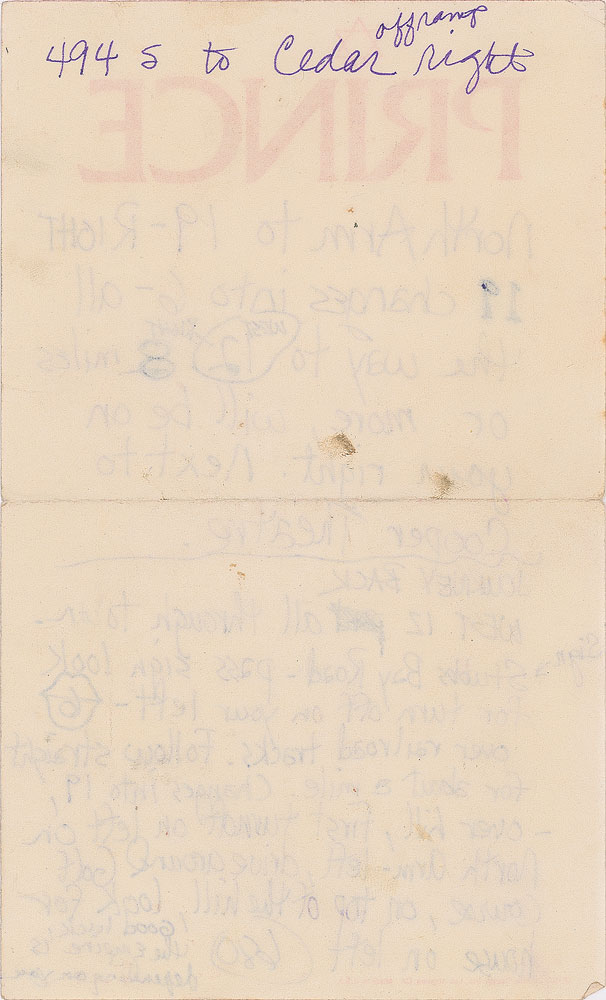 offramp
494 S to Cedar right
PRINCE
North Arm to 19-RIGHT
19 changes into 6- all
the way to 12 8 miles
or more, will be on
your right. Next to
Cooper Theatre.
JOURNEY BACK
WEST 12 all through town-
Shadds Bay Road - pass sign look
for turn off on your left - 6
over railroad tracks. Follow straight
for about a mile. Changes into 19,
- over hill, first turnoff on left on
North Arm - left, drive around Golf
course, on top of the hill, look for
house on left (680)
Good luck,
the empire is
depending on you